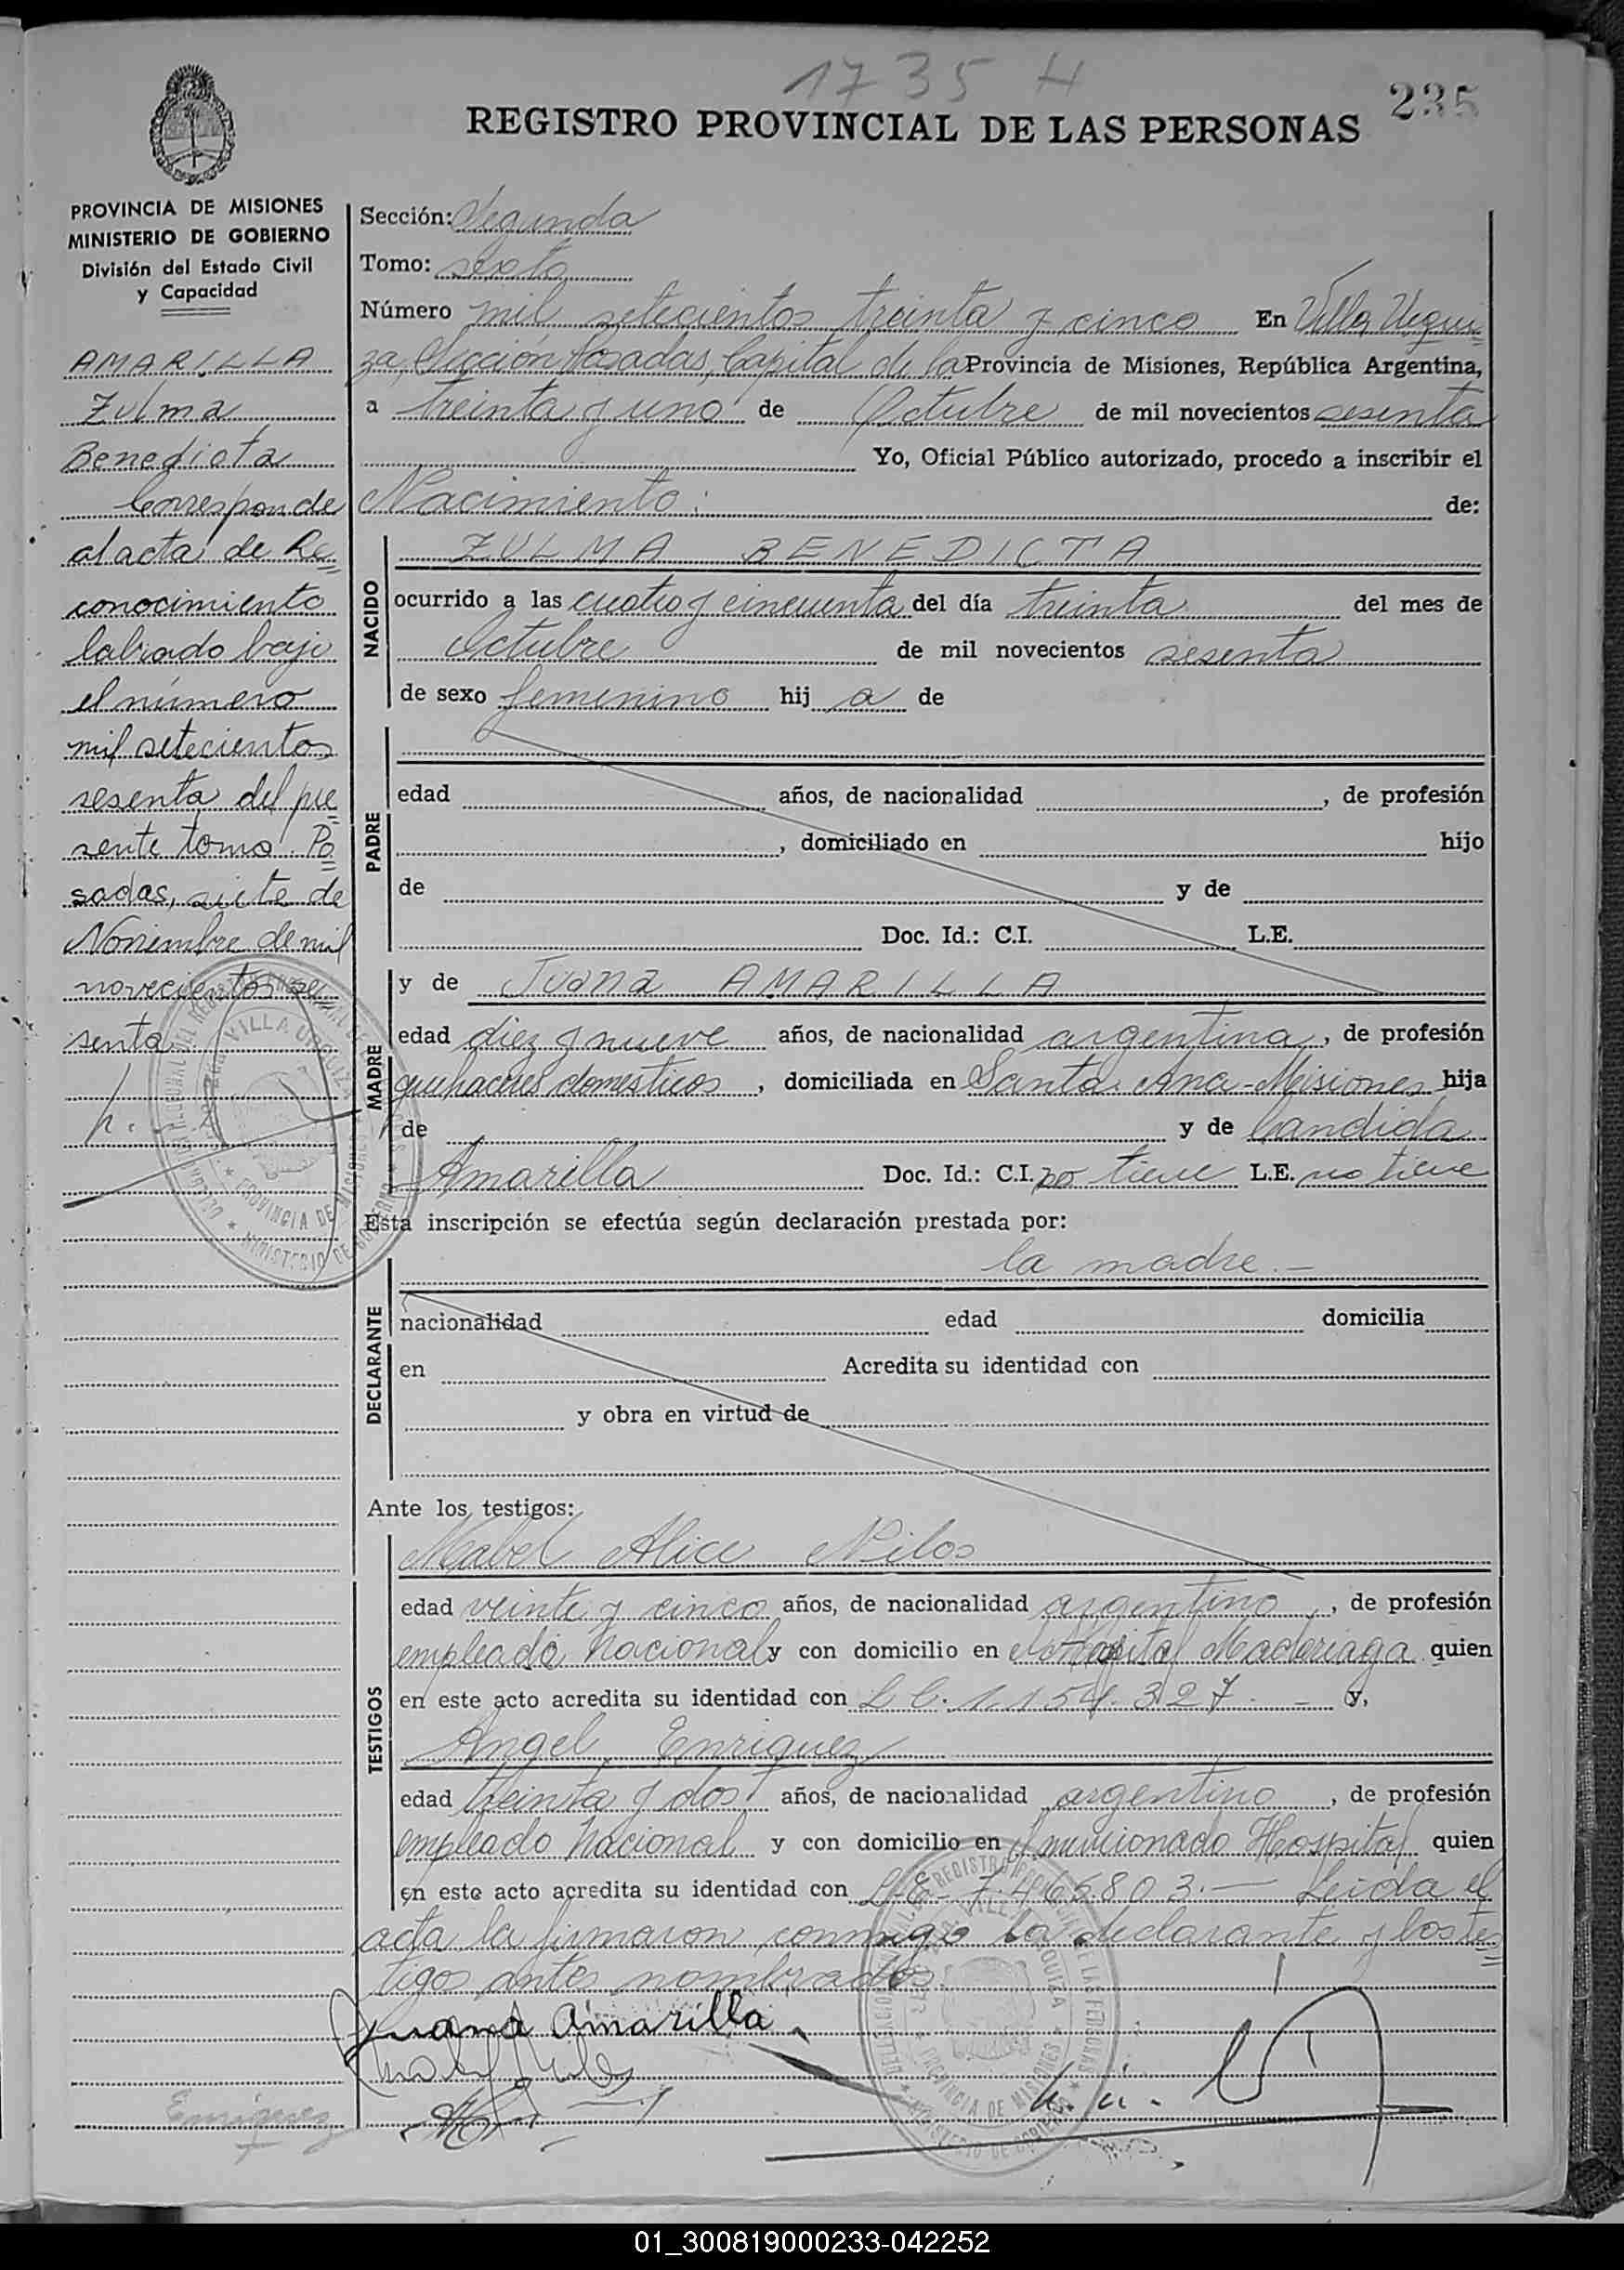 1735 H
235
REGISTRO PROVINCIAL DE LAS PERSONAS
PROVINCIA DE MISIONES
MINISTERIO DE GOBIERNO
División del Estado Civil
y Capacidad
AMARILLA
Zulma
Benedicta
Corresponde
al acta de Re
conocimiento
labrado bajo
el número
mil setecientos
sesenta del pre
sente tomo. Po
sadas, siete de
Noviembre de mil
novecientos se
senta
Sección: Segunda
Tomo: sexto
Número mil setecientos treinta y cinco En Villa Urqui
za, Sección Posadas, Capital de la Provincia de Misiones, República Argentina,
a treinta y uno de Octubre de mil novecientos sesenta
Yo, Oficial Público autorizado, procedo a inscribir el
Nacimiento: de:
NACIDO
ZULMA BENEDICTA
ocurrido a las cuatro y cincuenta del día treinta del mes de
Octubre de mil novecientos sesenta
de sexo femenino hij a de
PADRE
edad años, de nacionalidad , de profesión
, domiciliado en hijo
de y de
Doc. Id.: C.I. L.E.
MADRE
y de Juana AMARILLA
edad diez y nueve años, de nacionalidad argentina, de profesión
quehaceres domesticos, domiciliada en Santa Ana-Misiones hija
de y de Candida
Amarilla Doc. Id.: C.I. no tiene L.E. no tiene
Esta inscripción se efectúa según declaración prestada por:
la madre.-
DECLARANTE
nacionalidad edad domicilia
en Acredita su identidad con
y obra en virtud de
Ante los testigos:
TESTIGOS
Mabel Alice Nilos
edad veinte y cinco años, de nacionalidad argentino, de profesión
empleado Nacional y con domicilio en el Hospital Madariaga quien
en este acto acredita su identidad con L C. 1.154.327. - y,
Angel Enriquez
edad treinta y dos años, de nacionalidad argentino, de profesión
empleado Nacional y con domicilio en el mencionado Hospital quien
en este acto acredita su identidad con L.E. 7.465.803.- Leida el
acta la firmaron conmigo la declarante y los tes
tigos antes nombrados.
Juana Amarilla
Enriquez
01_300819000233-042252